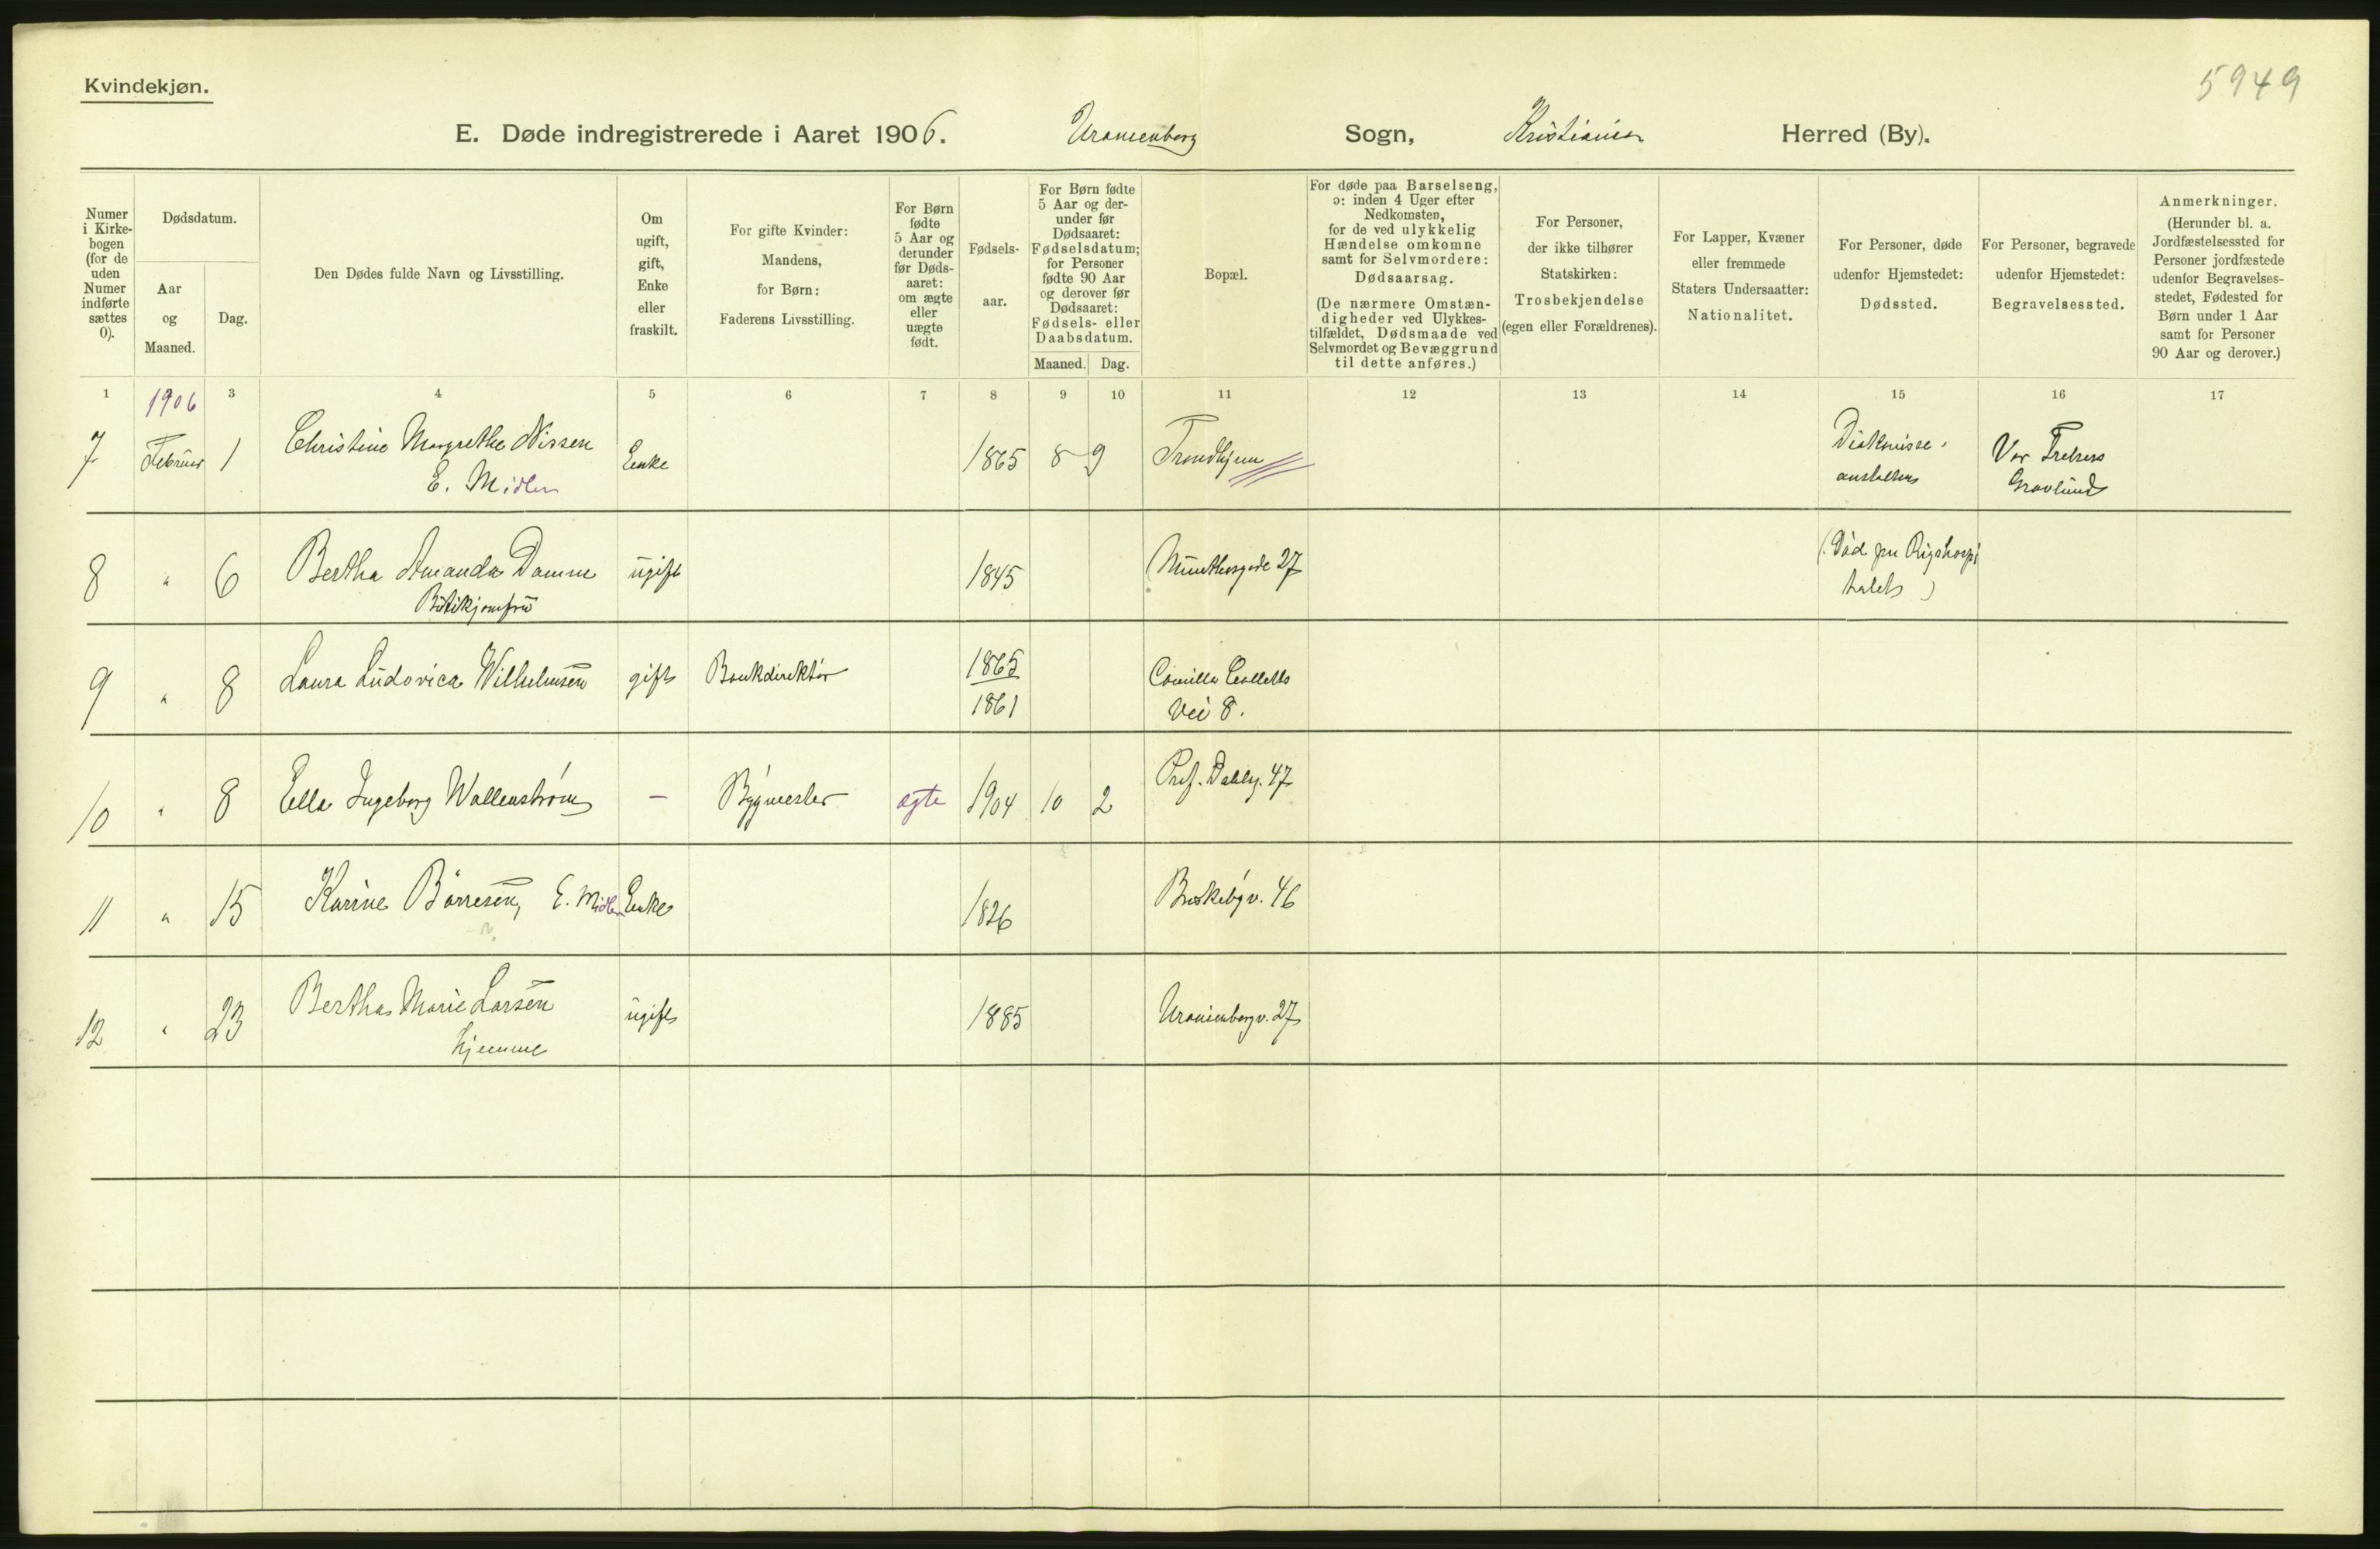 Kvindekjøn.
5949
E. Døde indregistrerede i Aaret 1906. Uranienborg Sogn, Kristiania Herred (By).
Numer i Kirkebogen (for de uden Numer indførte sættes 0).
Dødsdatum.
Aar og Maaned.
Dag.
Den Dødes fulde Navn og Livsstilling.
Om ugift, gift, Enke eller fraskilt.
For gifte Kvinder: Mandens, for Børn: Faderens Livsstilling.
For Børn fødte 5 Aar og derunder før Dødsaaret: om ægte eller uægte født.
Fødselsaar.
For Børn fødte 5 Aar og derunder før Dødsaaret: Fødselsdatum; for Personer fødte 90 Aar og derover før Dødsaaret: Fødsels- eller Daabsdatum.
Maaned. Dag.
Bopæl.
For døde paa Barselseng, ɔ: inden 4 Uger efter Nedkomsten, for de ved ulykkelig Hændelse omkomne samt for Selvmordere: Dødsaarsag.
(De nærmere Omstændigheder ved Ulykkestilfældet, Dødsmaade ved Selvmordet og Bevæggrund til dette anføres.)
For Personer, der ikke tilhører Statskirken: Trosbekjendelse (egen eller Forældrenes).
For Lapper, Kvæner eller fremmede Staters Undersaatter: Nationalitet.
For Personer, døde udenfor Hjemstedet: Dødssted.
For Personer, begravede udenfor Hjemstedet: Begravelsessted.
Anmerkninger.
(Herunder bl. a. Jordfæstelsessted for Personer jordfæstede udenfor Begravelsesstedet, Fødested for Børn under 1 Aar samt for Personer 90 Aar og derover.)
1 2 3 4 5 6 7 8 9 10 11 12 13 14 15 16 17
1906
7 Februar 1 Christine Margrethe Nissen Enke 1865 8 9 Trondhjem Diakonisse- Vor Frelsers
E. Midler anstalten Gravlund
8 " 6 Bertha Amanda Damm ugift 1845 Munthesgade 27 (Død paa Rigshospi
Butikjomfru talet)
9 " 8 Laura Ludovica Wilhelmsen gift Bankdirektør 1865 Camilla Colletts
1861 Vei 8.
10 " 8 Ella Ingeborg Wallenstrøm - Bygmester ægte 1904 10 2 Prof. Dahlsg. 47
11 " 15 Karine Børresen, E. Midler Enke 1826 Briskebyv. 46
12 " 23 Bertha Marie Larsen ugift 1885 Uranienborgv. 27
hjemme